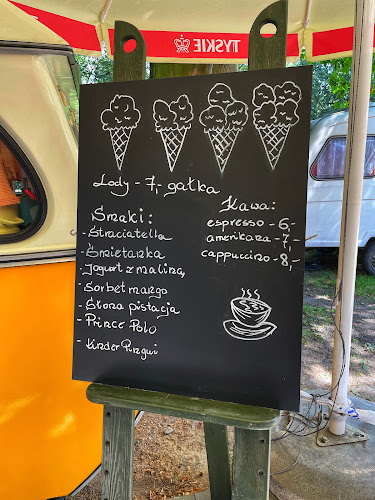 TYSKIE
Lody - 7,- gałka
Smaki:
- Straciatella
- Śmietanka
- Jogurt z maliną
- Sorbet mango
- Słona pistacja
- Prince Polo
- Kinder Pingui
Kawa:
espresso - 6,-
amerikana - 7,-
cappuccino - 8,-